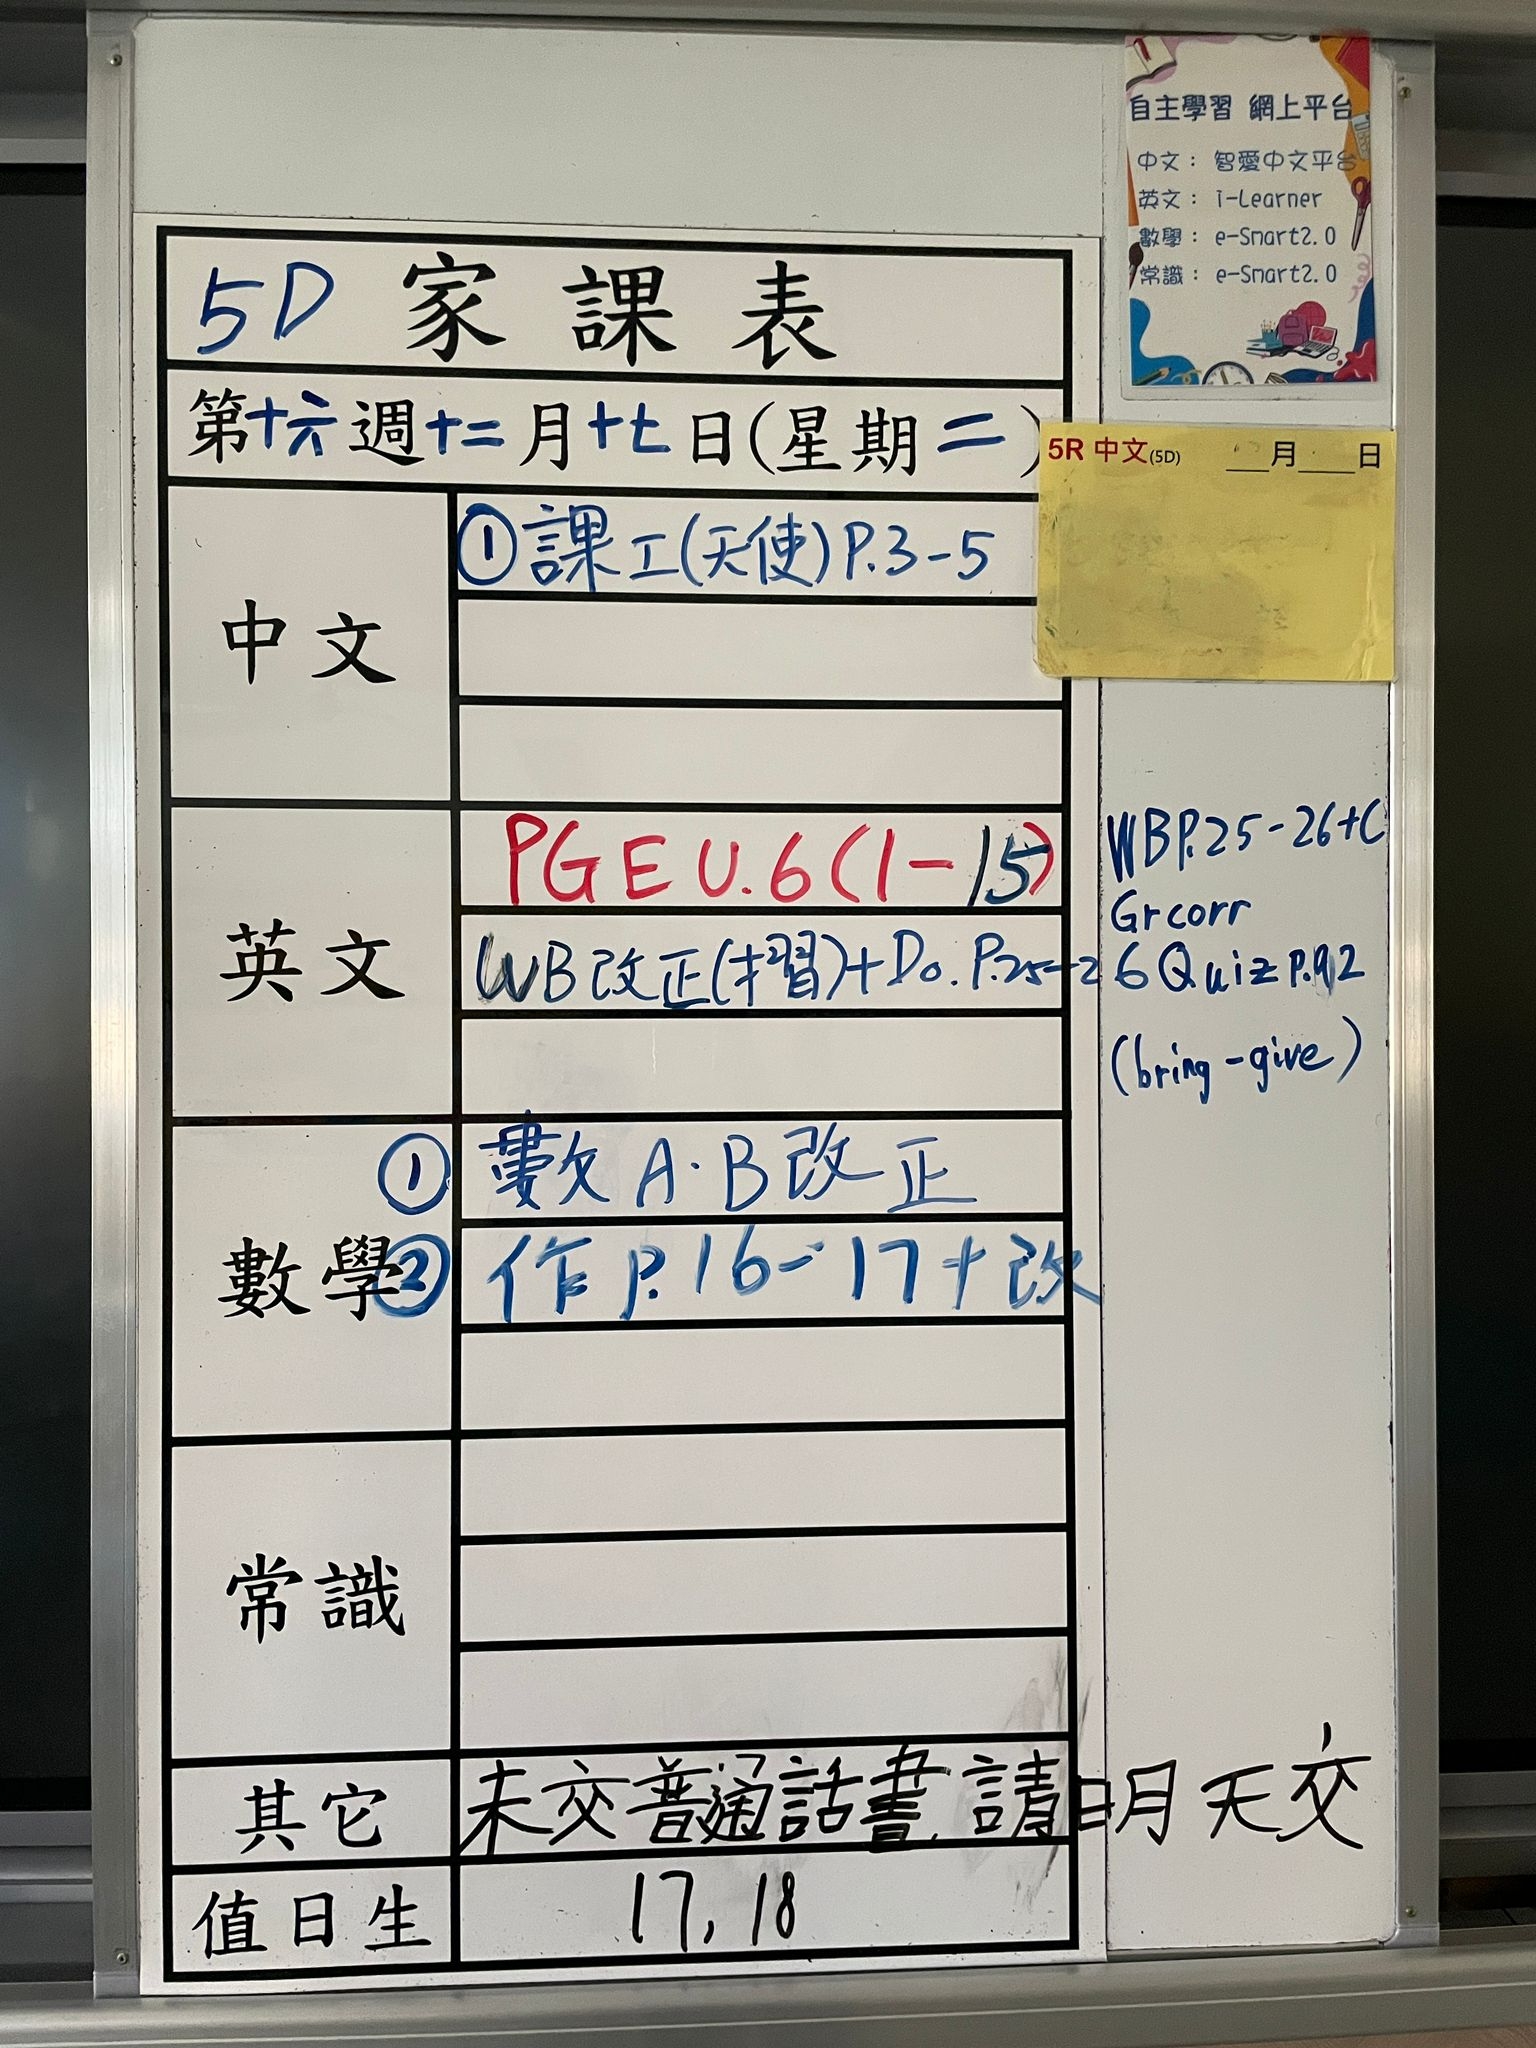 自主學習 網上平台
中文： 智愛中文平台
英文： i-Learner
數學： e-Smart2.0
常識： e-Smart2.0
5D 家課表
第十六週十二月十七日(星期二)
5R 中文(5D) ___月____日
中文
①課工(天使)P.3-5
英文
PGE U.6(1-15)
WB改正(才習)+Do. P.25-26
WBP.25-26+C
Grcorr
Quiz P.92
(bring-give)
數學
① 數A.B改正
② 作P.16-17+改
常識
其它
未交普通話書,請明天交
值日生
17, 18